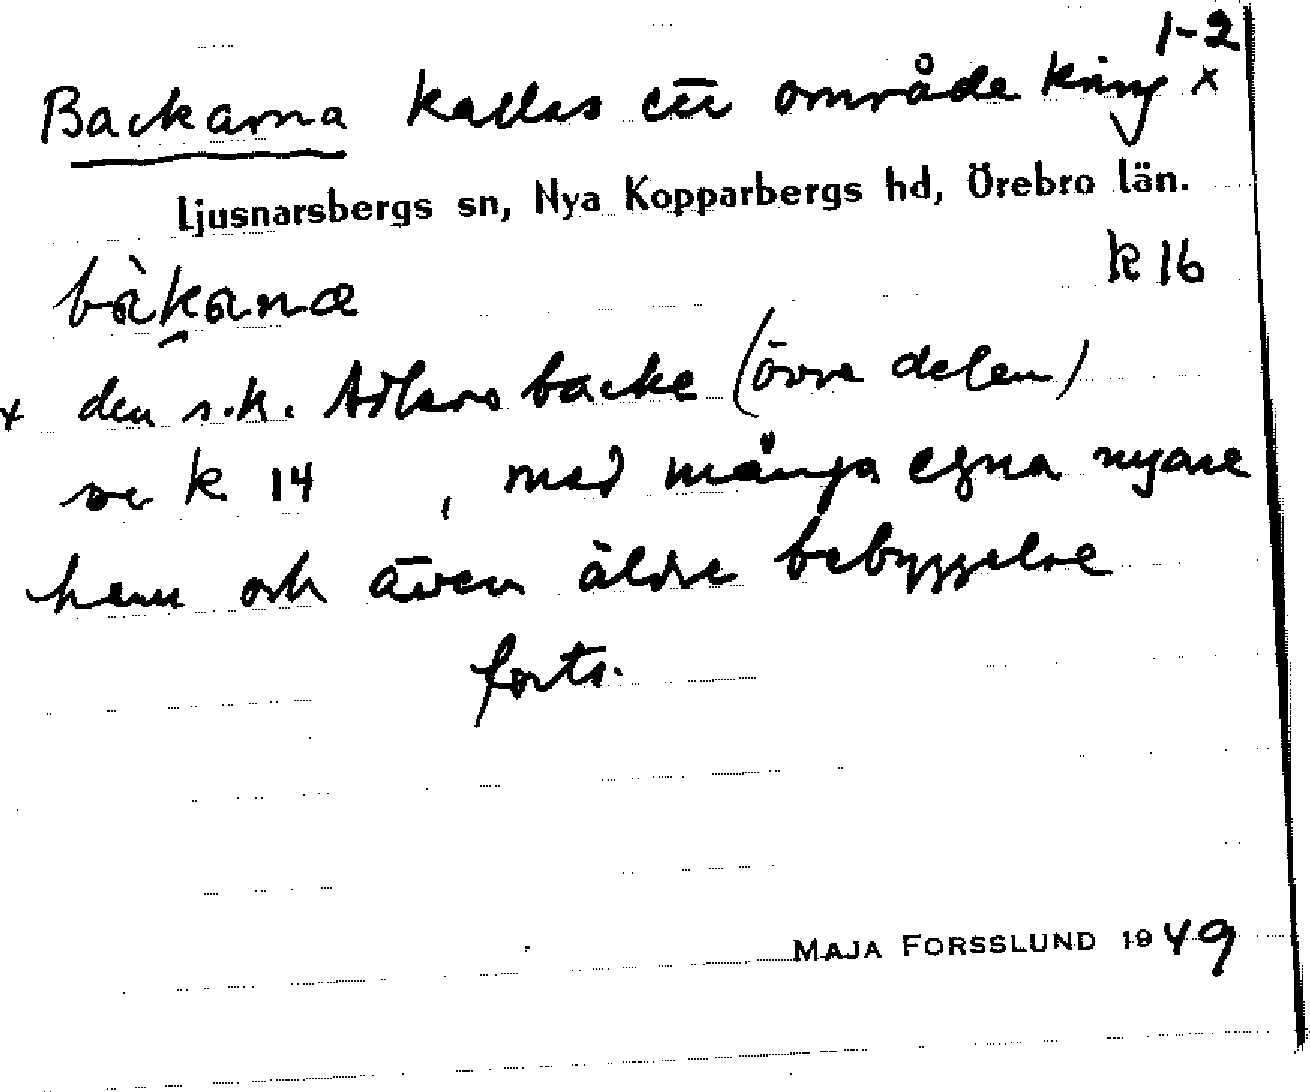 1-2
Backarna kallas ett område kring x
Ljusnarsbergs sn, Nya Kopparbergs hd, Örebro län.
bàkanæ k 16
x den s.k. backe (övre delen)
se k 14 , med många egna nyare
hem och även äldre bebyggelse
forts.
MAJA FORSSLUND 1949